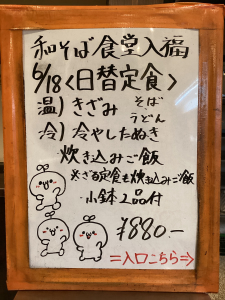 和そば食堂入福
6/18<日替定食>
温)きざみ そば
うどん
冷)冷やしたぬき
炊き込みご飯
※ざる定食も炊き込みご飯
小鉢2品付
¥880-
=入口こちら⇒